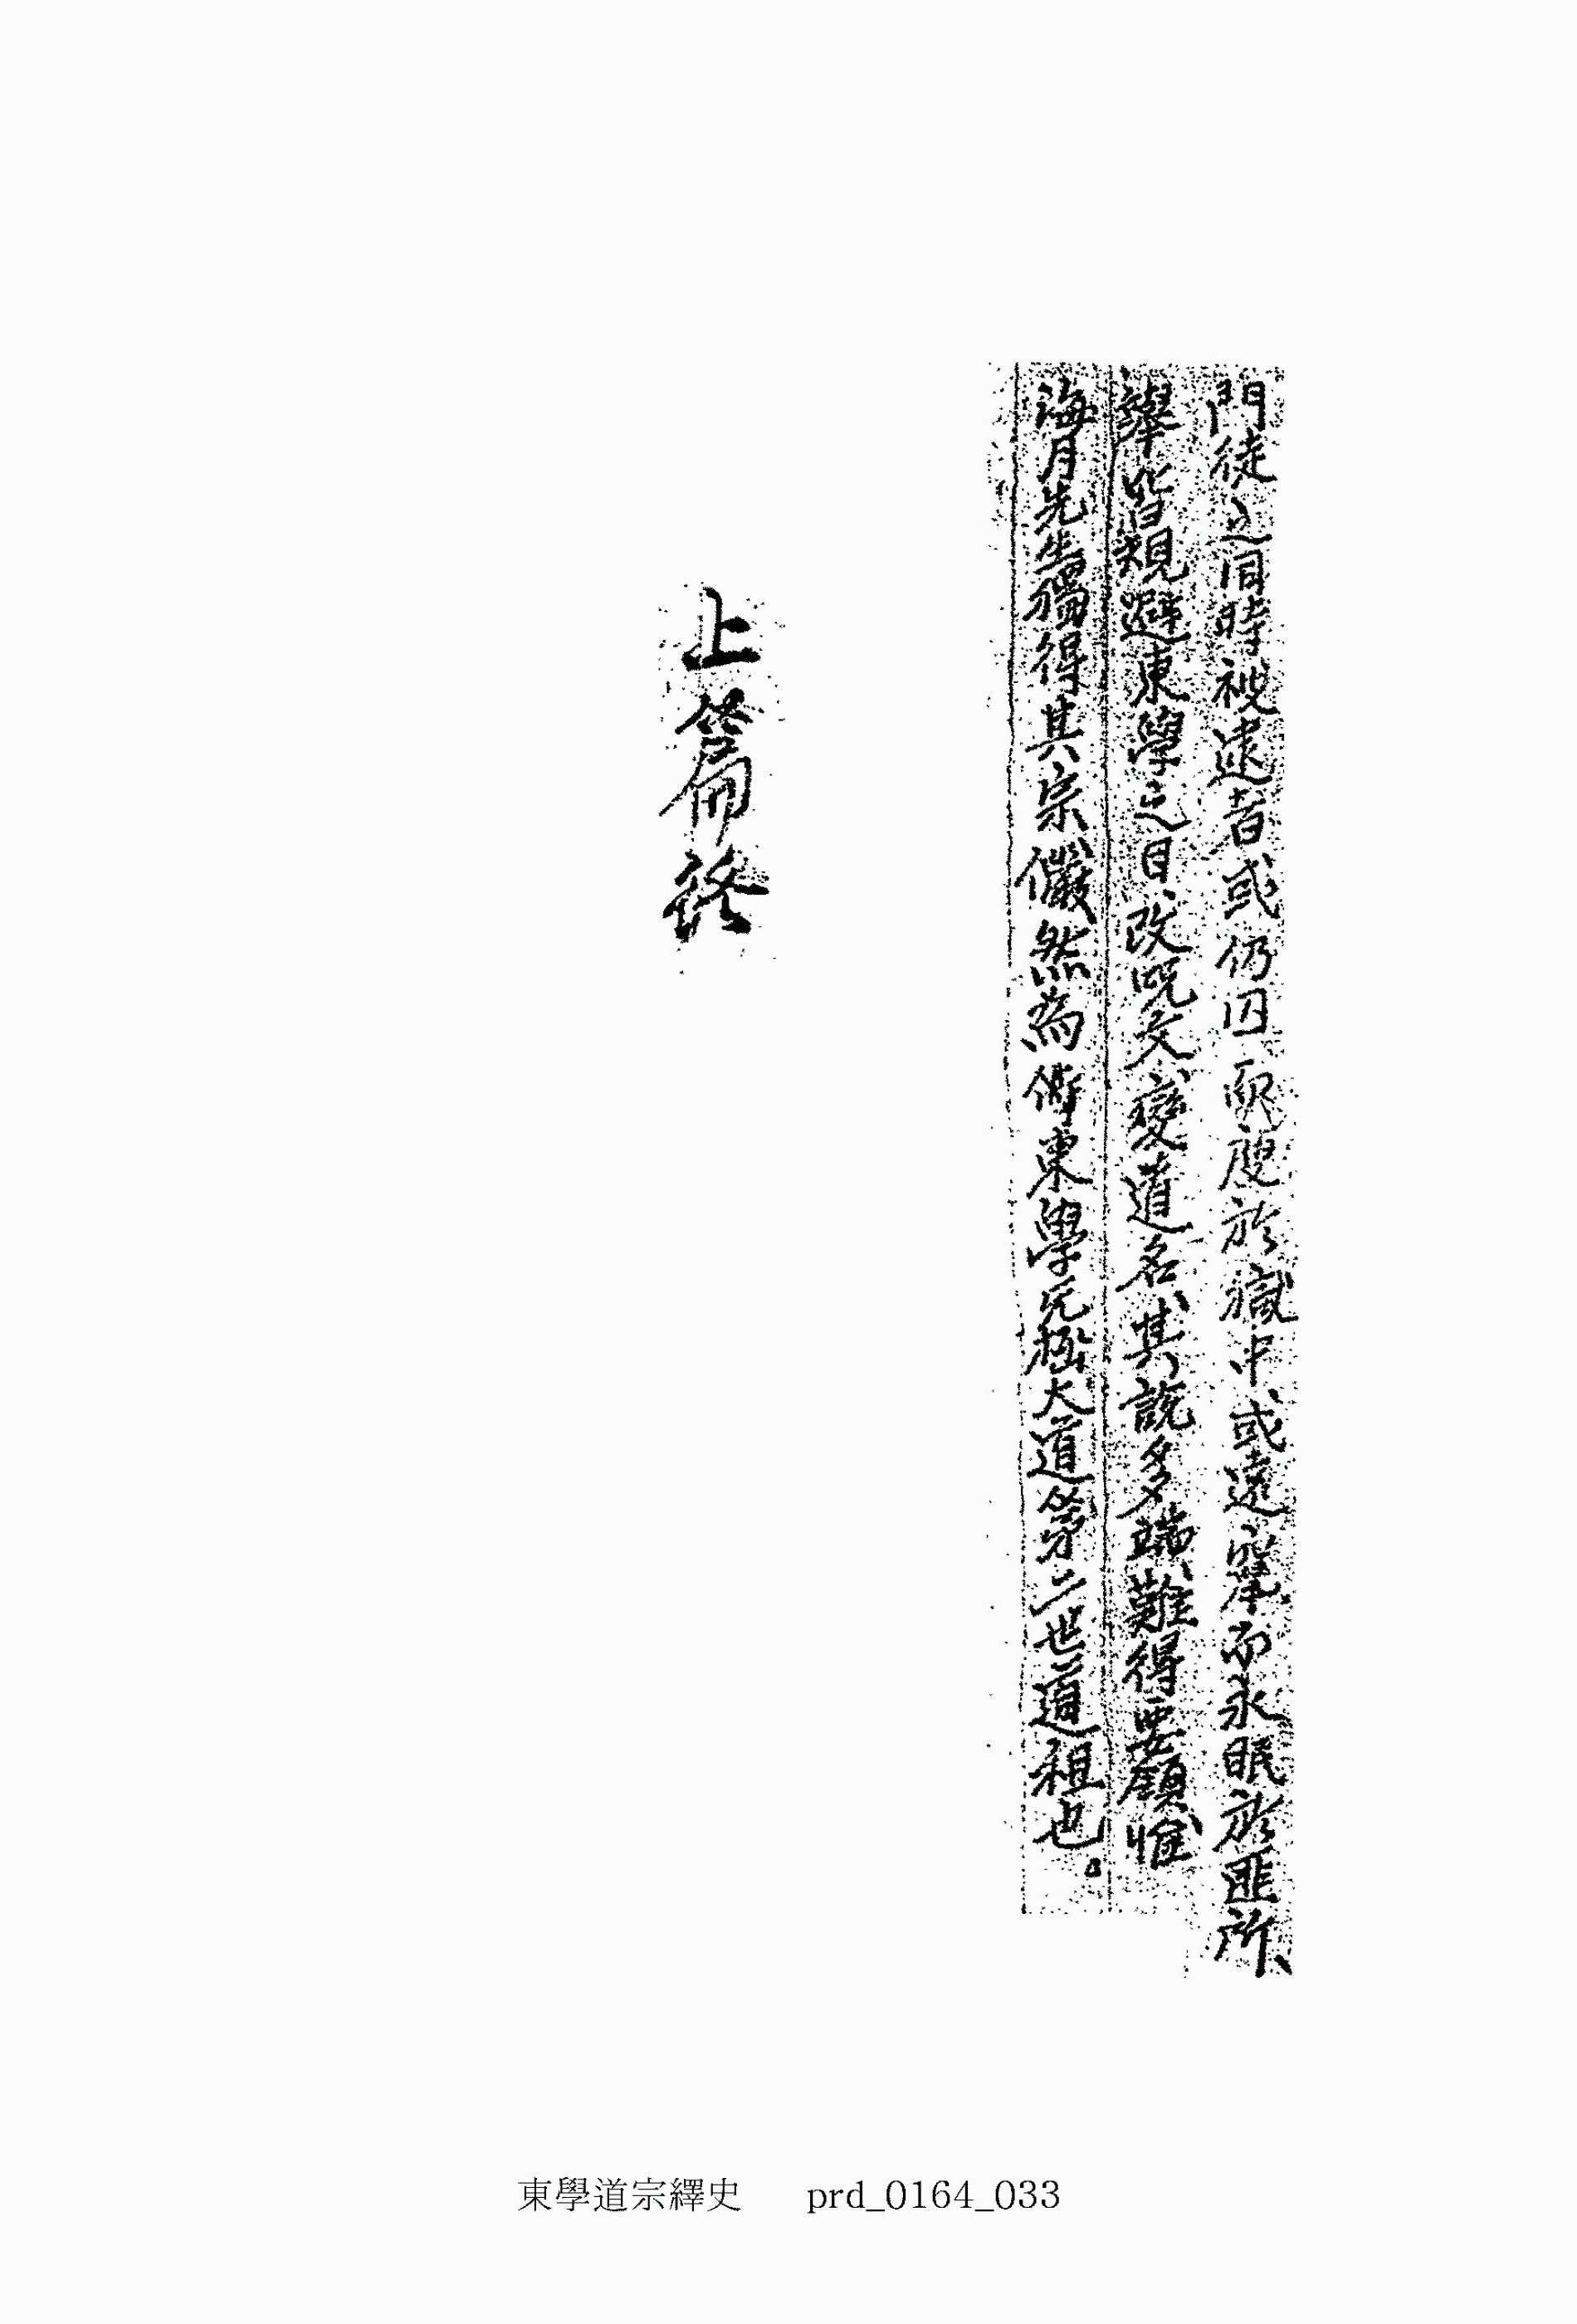 門徒之同時被逮者或仍囚而瘦於獄中或遠竄而永眠於匪所、
擧皆規避東學之目、改呪文、變道名、其說多端、難得要領、惟
海月先生獨得其宗、儼然為侍東學无極大道第二世道祖也。
上篇終
東學道宗繹史 prd_0164_033